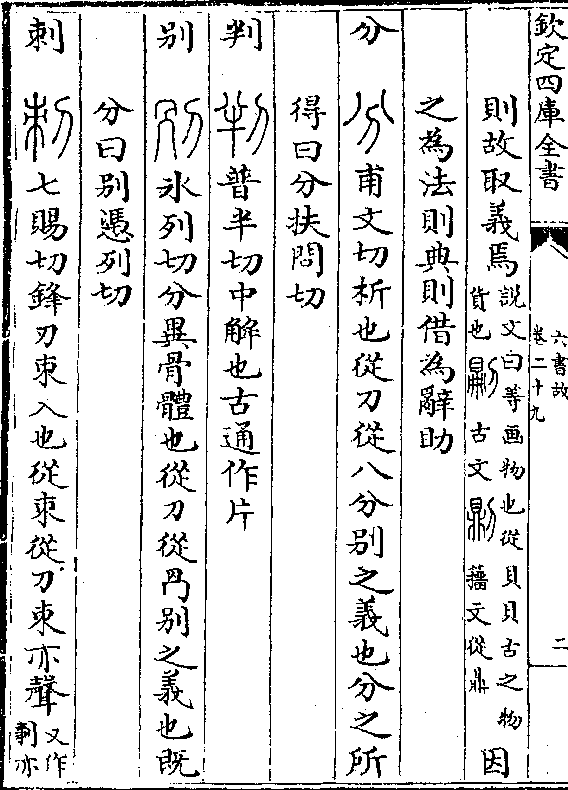 欽定四庫全書
六書故
卷二十九
二
則故取義焉說文曰等画物也從貝貝古之物貨也 古文 籀文從鼎因
之為法則典則借為辭助
分 甫文切析也從刀從八分别之義也分之所
得曰分扶問切
判 普半切中解也古通作片
别 氷列切分異骨體也從刀從冎别之義也既
分曰别憑列切
刺 七賜切鋒刃朿入也從朿從刀朿亦聲又作㓨亦